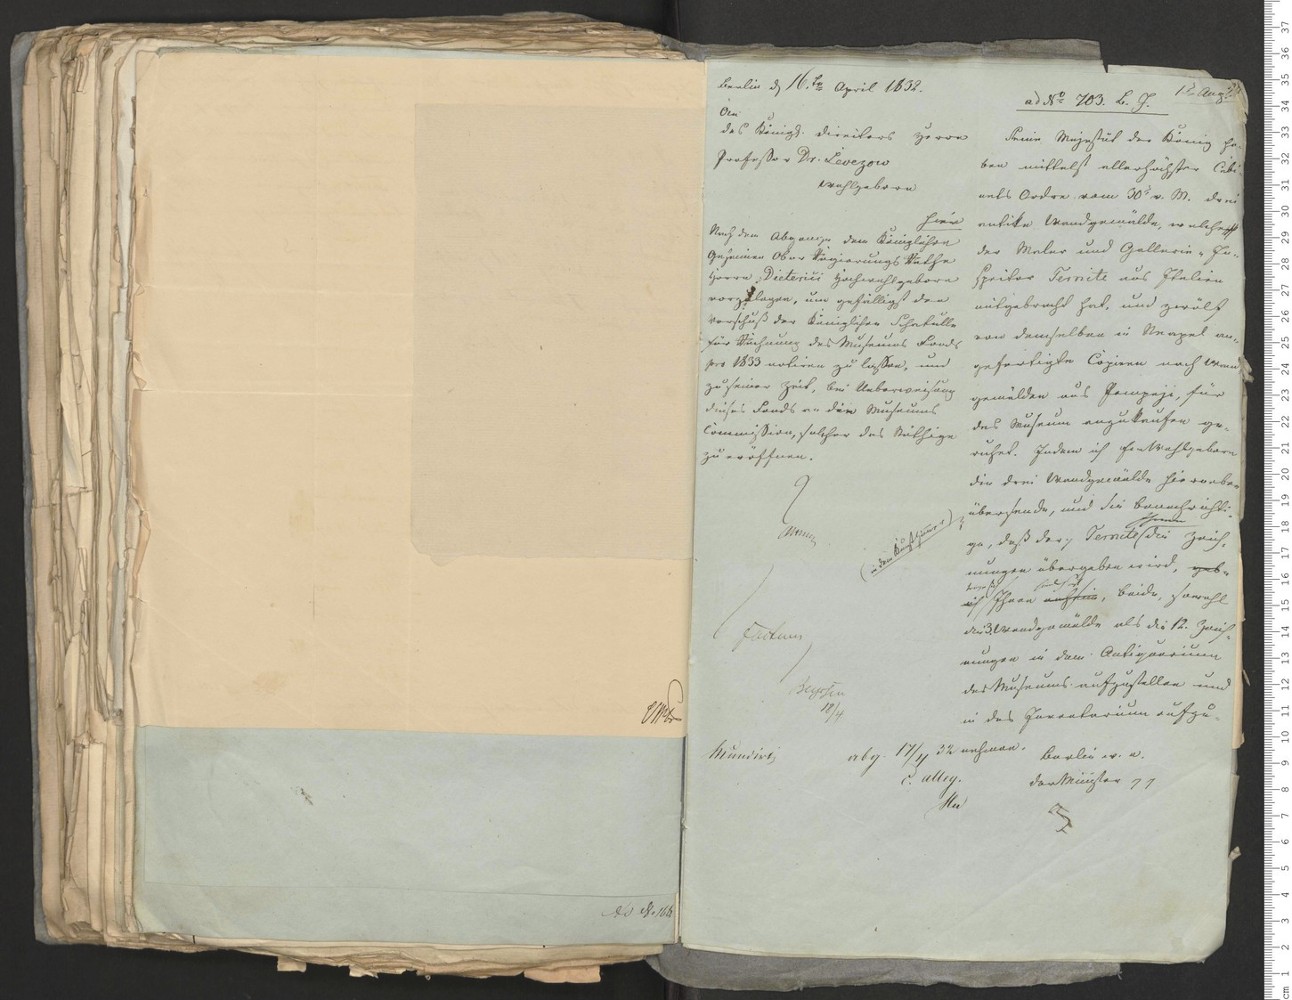 Berlin d 16.ten April 1832.
An
des Königl. Direktors Herrn
Professor Dr. Levezow
Wohlgeboren
hier
Nach dem Abgange dem Königlichen
Geheimen Ober Regierungs Rathe
Herrn Dieterici Hochwohlgeboren
vorzulegen, um gefälligst den
Vorschuß der Königlichen Schatulle
für Rechnung des Museums Fonds
pro 1833 notiren zu lassen, und
zu seiner Zeit, bei Ueberweisung
dieses Fonds an die Museums
Commission, solcher das Nöthige
zu eröffnen.
Factum
18/4
Mundirt
abg. 17/4 32
ad No 703. L. J.
Seine Majestät der König ha-
ben mittelst allerhöchster Cabi-
nets Ordre vom 30t v. M. drei
antike Wandgemälde, welche
der Maler und Gallerie-In-
spektor Ternite aus Italien
mitgebracht hat, und zwölf
von demselben in Neapel an-
gefertigte Copien nach Wand
gemälden aus Pompeji, für
das Museum anzukaufen ge-
ruhet. Indem ich Ew Wohlgeboren
die drei Wandgemälde hierneben
übersende, und Sie benachrichti-
ge, daß der p Ternite Ihnen die Zeich-
nungen übergeben wird,
(in dem Kupferstich)
ich Ihnen, beide, sowohl
die 3 Wandgemälde als die 12. Zeich-
nungen in dem Antiquarium
des Museums aufzustellen und
in das Inventarium aufzu-
nehmen.
Berlin w. o.
Der Minister
c. alleg.